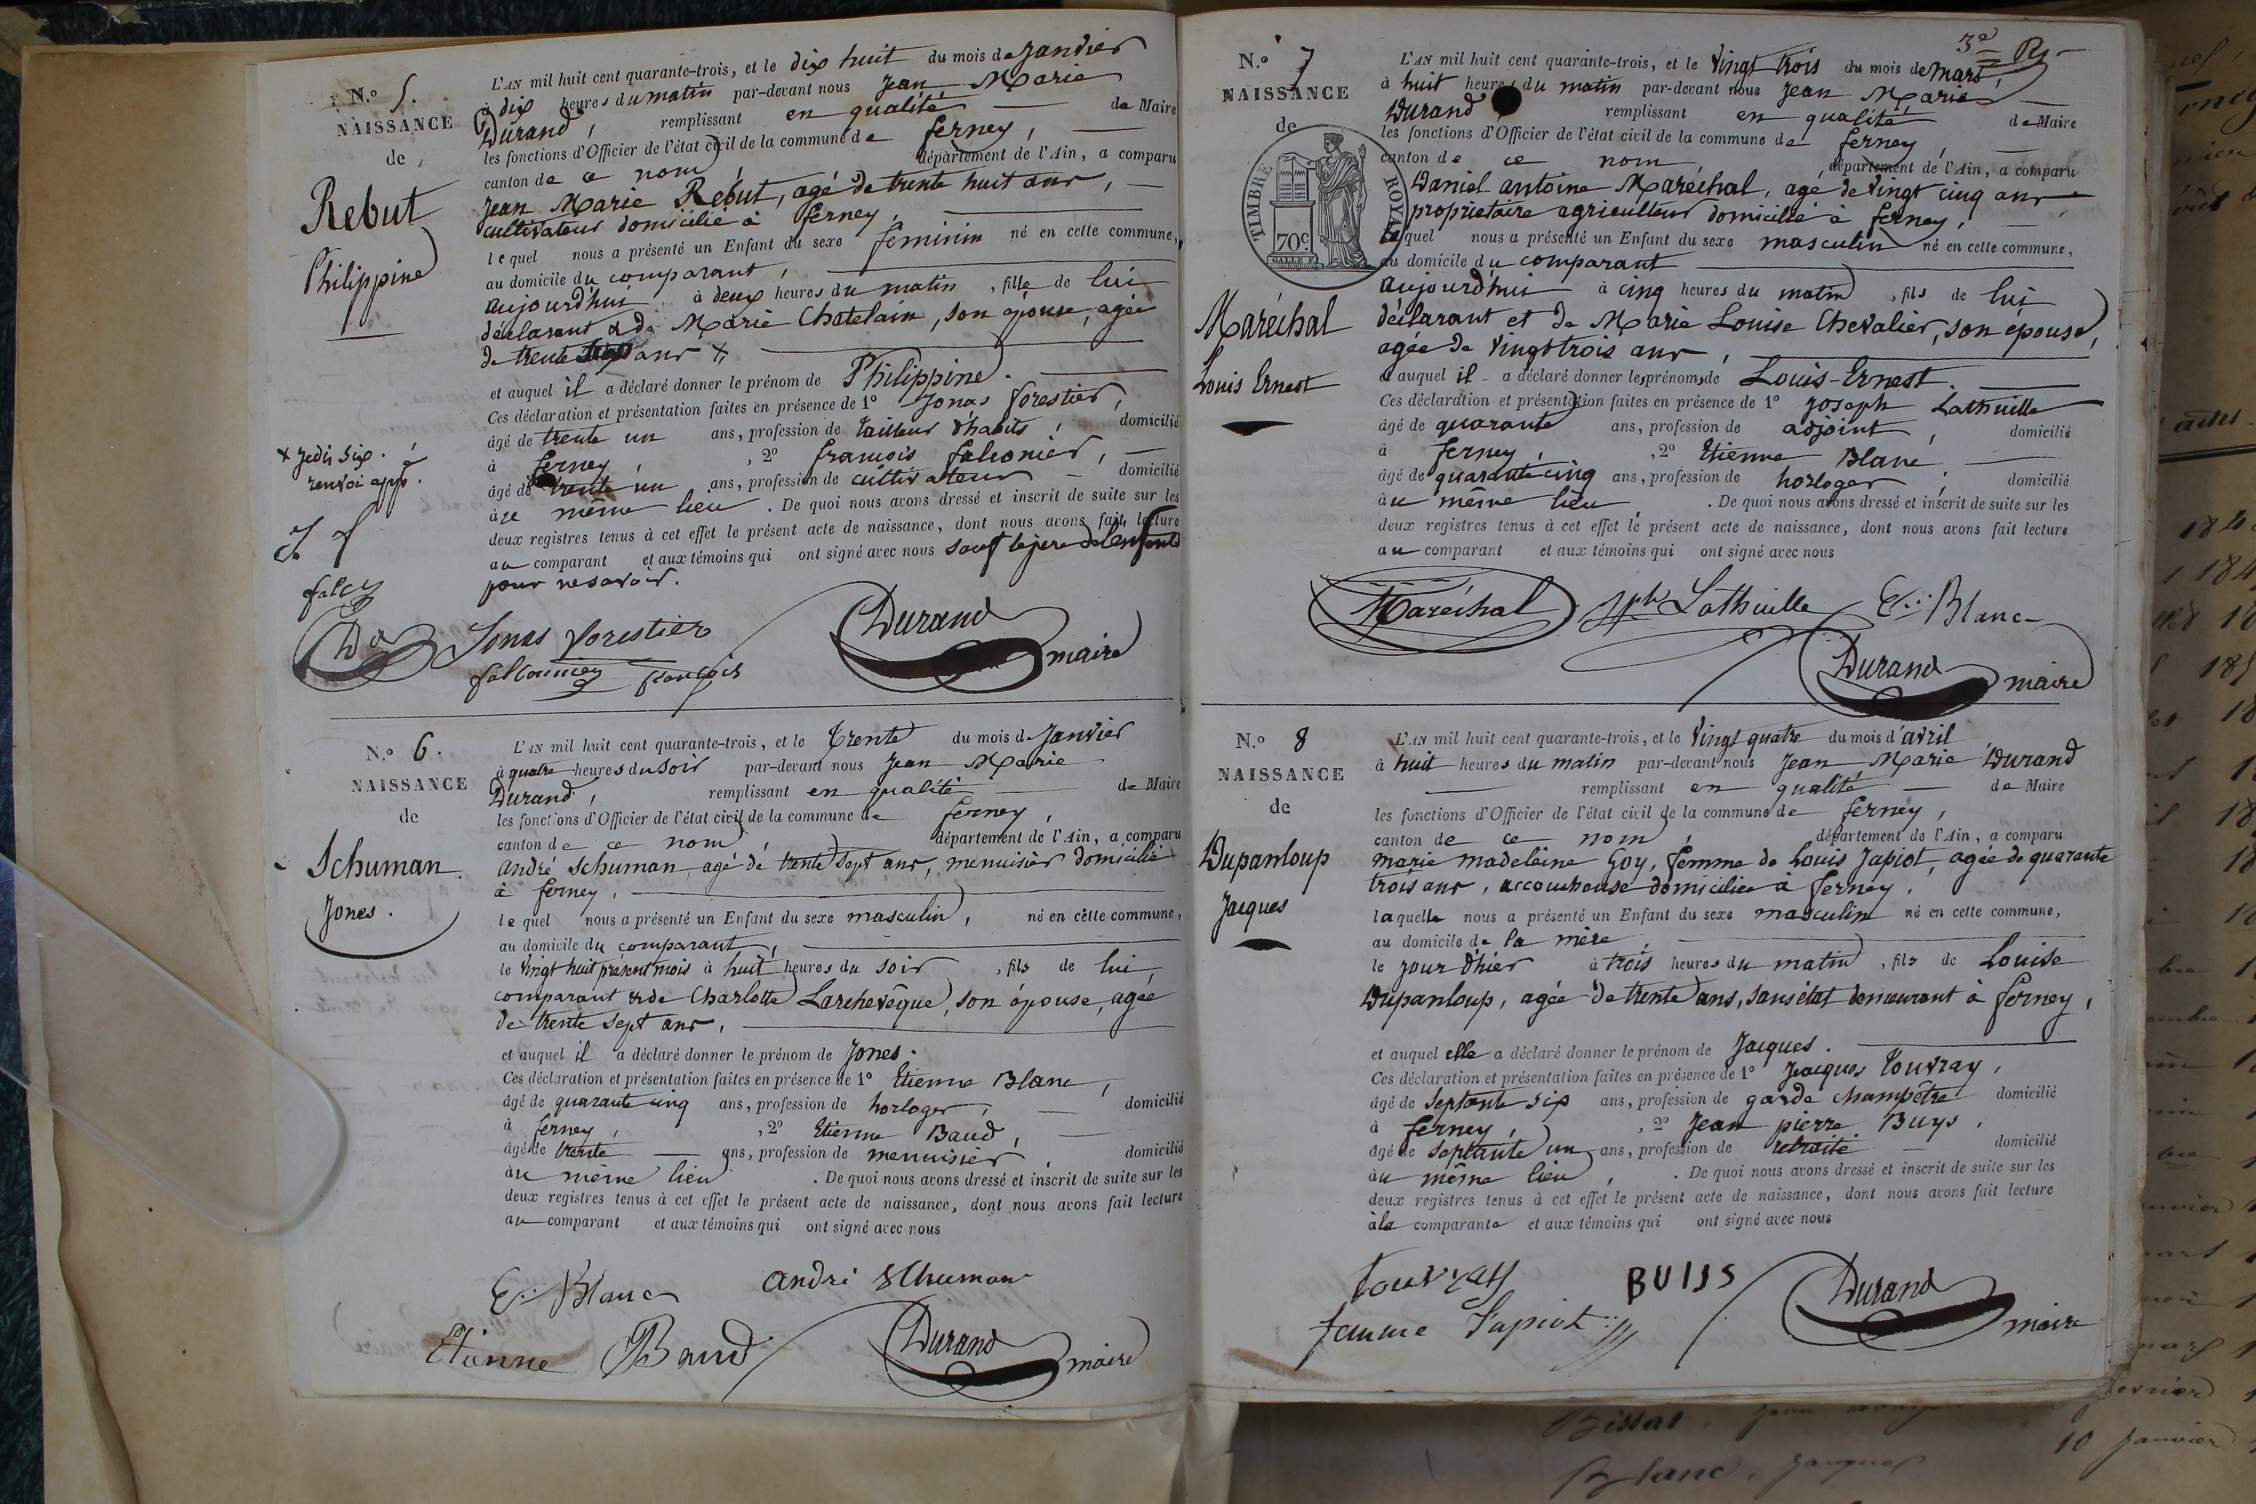 N.° 5.
NAISSANCE
de
Rebut
Philippine
L'AN mil huit cent quarante-trois, et le dix huit du mois de Janvier
à dix heures du matin par-devant nous Jean Marie
Durand, remplissant en qualité de Maire
les fonctions d'Officier de l'état civil de la commune de ferney,
canton de ce nom, département de l'Ain, a comparu
Jean Marie Rebut, agé de trente huit ans,
cultivateur domicilié à ferney,
lequel nous a présenté un Enfant du sexe feminin né en cette commune,
au domicile du comparant,
aujourd'hui à deux heures du matin, fille de lui
déclarant & de Marie Chatelain, son épouse, agée
de trente ans +,
et auquel il a déclaré donner le prénom de Philippine.
Ces déclaration et présentation faites en présence de 1° Jonas forestier,
âgé de trente un ans, profession de tailleur d'habits, domicilié
à ferney, 2° francois falconier,
âgé de trente un ans, profession de cultivateur domicilié
à ce même lieu. De quoi nous avons dressé et inscrit de suite sur les
deux registres tenus à cet effet le présent acte de naissance, dont nous avons fait lecture
au comparant et aux témoins qui ont signé avec nous sauf le pere de l'enfant
pour ne savoir.
+ je dis six.
renvoi app.
J f
falcy
Dd
Jonas forestier
falconnier francois
Durand
maire
N.° 6.
NAISSANCE
de
Schuman
Jones.
L'AN mil huit cent quarante-trois, et le trente du mois de Janvier
à quatre heures du soir par-devant nous Jean Marie
Durand, remplissant en qualité de Maire
les fonctions d'Officier de l'état civil de la commune de ferney,
canton de ce nom, département de l'Ain, a comparu
andré schuman agé de trente sept ans, menuisier domicilié
à ferney,
lequel nous a présenté un Enfant du sexe masculin, né en cette commune,
au domicile du comparant,
le vingt huit présent mois à huit heures du soir, fils de lui,
comparant & de Charlotte Larchevêque, son épouse, agée
de trente sept ans,
et auquel il a déclaré donner le prénom de Jones.
Ces déclaration et présentation faites en présence de 1° Etienne Blanc,
âgé de quarante cinq ans, profession de horloger, domicilié
à ferney, 2° Etienne Baud,
âgé de trente ans, profession de menuisier, domicilié
àu même lieu. De quoi nous avons dressé et inscrit de suite sur les
deux registres tenus à cet effet le présent acte de naissance, dont nous avons fait lecture
au comparant et aux témoins qui ont signé avec nous
E. Blanc
andré schuman
Etienne Baud
Durand
maire
3e R
N.° 7
NAISSANCE
de
TIMBRE ROYAL
70c
Maréchal
Louis Ernest
L'AN mil huit cent quarante-trois, et le vingt trois du mois de mars
à huit heures du matin par-devant nous Jean Marie
Durand remplissant en qualité de Maire
les fonctions d'Officier de l'état civil de la commune de ferney,
canton de ce nom, département de l'Ain, a comparu
Daniel antoine Maréchal, agé de vingt cinq ans
proprietaire agriculteur domicilié à ferney,
lequel nous a présenté un Enfant du sexe masculin né en cette commune,
au domicile du comparant
aujourd'hui à cinq heures du matin, fils de lui
déclarant et de Marie Louise Chevalier, son épouse,
agée de vingt trois ans,
et auquel il a déclaré donner les prénoms de Louis-Ernest.
Ces déclaration et présentation faites en présence de 1° Joseph Lathuille
âgé de quarante ans, profession de adjoint, domicilié
à ferney, 2° Etienne Blanc,
âgé de quarante cinq ans, profession de horloger, domicilié
àu même lieu. De quoi nous avons dressé et inscrit de suite sur les
deux registres tenus à cet effet le présent acte de naissance, dont nous avons fait lecture
au comparant et aux témoins qui ont signé avec nous
Maréchal
Jph Lathuille
E. Blanc
Durand
maire
N.° 8
NAISSANCE
de
Dupanloup
Jacques
L'AN mil huit cent quarante-trois, et le vingt quatre du mois d'avril
à huit heures du matin par-devant nous Jean Marie Durand
remplissant en qualité de Maire
les fonctions d'Officier de l'état civil de la commune de ferney,
canton de ce nom, département de l'Ain, a comparu
marie madeleine Goy, femme de Louis Japiot, agée de quarante
trois ans, accoucheuse domiciliée à ferney,
laquelle nous a présenté un Enfant du sexe masculin né en cette commune,
au domicile de la mère
le jour d'hier à trois heures du matin, fils de Louise
Dupanloup, agée de trente ans, sans état demeurant à ferney,
et auquel elle a déclaré donner le prénom de Jacques.
Ces déclaration et présentation faites en présence de 1° Jacques Touvray,
âgé de septante six ans, profession de garde champêtre domicilié
à ferney, 2° Jean pierre Buys,
âgé de septante un ans, profession de retraité domicilié
àu même lieu, . De quoi nous avons dressé et inscrit de suite sur les
deux registres tenus à cet effet le présent acte de naissance, dont nous avons fait lecture
à la comparante et aux témoins qui ont signé avec nous
Touvray
BUISS
femme Japiot
Durand
maire
Bissat
Blanc, Jacques
10 Janvier